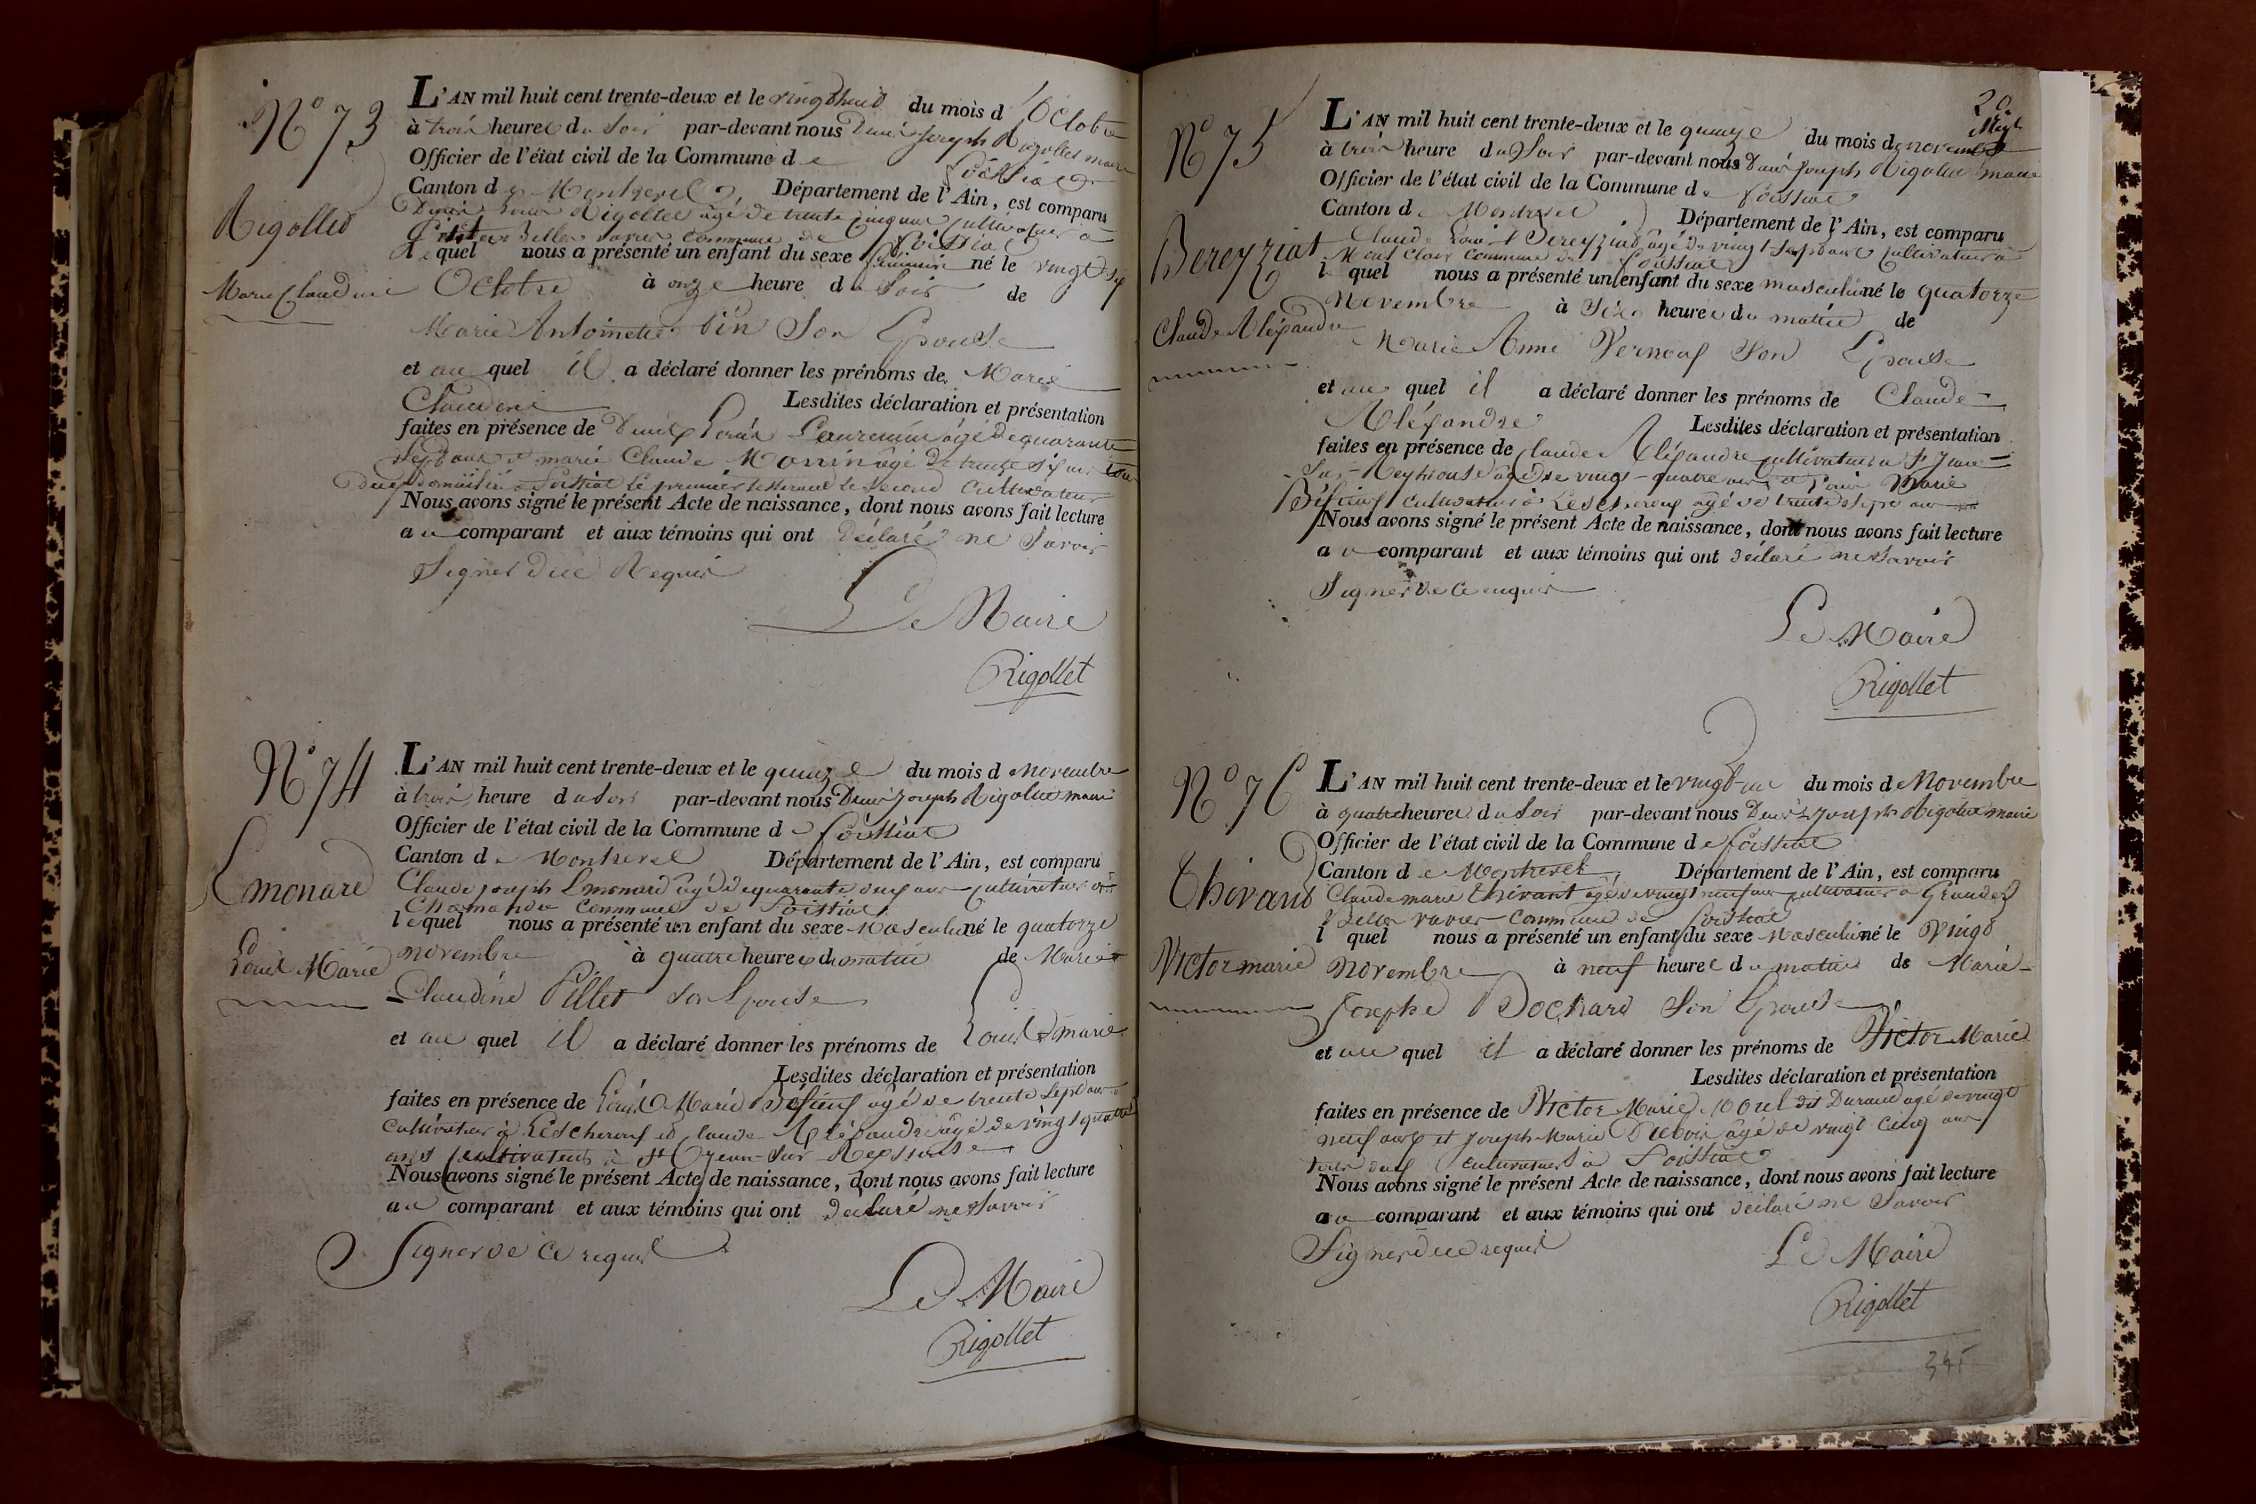 N° 73
Rigollet
Marie Claudine
L'AN mil huit cent trente-deux et le vingt huit du mois d'Octobre
à trois heures du Soir par-devant nous Denis Joseph Rigollet maire
Officier de l'état civil de la Commune de Foissiat
Canton de Montrevel Département de l'Ain, est comparu
Denis Rigollet âgé de trente cinq ans cultivateur à
commune de Foissiat
lequel nous a présenté un enfant du sexe féminin né le vingt sept
Octobre à onze heure du Soir de
Marie Antoinette Pin Son Epouse
et au quel il a déclaré donner les prénoms de Marie
Claudine Lesdites déclaration et présentation
faites en présence de Denis Laurencin âgé de quarante
sept ans et marie Claude Monnin âgé de trente six ans tous
deux domiciliés à Foissiat le premier le second Cultivateur
Nous avons signé le présent Acte de naissance, dont nous avons fait lecture
au comparant et aux témoins qui ont déclaré ne Savoir
Signer de ce Requis
Le Maire
Rigollet
N° 74
Lmonard
Louis Marie
L'AN mil huit cent trente-deux et le quinze du mois d Novembre
à trois heure du Soir par-devant nous Denis Joseph Rigollet maire
Officier de l'état civil de la Commune de Foissiat
Canton de Montrevel Département de l'Ain, est comparu
Claude joseph Lmonard âgé de quarante deux ans Cultivateur à
commune de Foissiat
lequel nous a présenté un enfant du sexe Masculin né le quatorze
novembre à quatre heures du matin de Marie
Claudine Pillet Son Epouse
et au quel il a déclaré donner les prénoms de Louis Marie
Lesdites déclaration et présentation
faites en présence de Louis Marie Béfieuf âgé de trente Sept ans
Cultivateur à Lescheroux et Claude Aléxandre âgé de vingt quatre
ans Cultivateur à St Jean-Sur-Reyssouse
Nous avons signé le présent Acte de naissance, dont nous avons fait lecture
au comparant et aux témoins qui ont déclaré ne Savoir
Signer de Ce requis
Le Maire
Rigollet
N° 75
Bereyziat
Claude Aléxandre
L'AN mil huit cent trente-deux et le quinze du mois de novembre
à trois heure du Soir par-devant nous Denis Joseph Rigollet maire
Officier de l'état civil de la Commune de Foissiat
Canton de Montrevel Département de l'Ain, est comparu
Claude Louis Bereyziat âgé de vingt Sept ans cultivateur à
Mont Clair Commune de Foissiat
lequel nous a présenté un enfant du sexe masculin né le quatorze
Novembre à Six heures du matin de
Marie Anne Vernoux Son Epouse
et au quel il a déclaré donner les prénoms de Claude
Aléxandre Lesdites déclaration et présentation
faites en présence de Claude Aléxandre cultivateur à St Jean
Sur-Reyssouse âgé de vingt-quatre ans et Louis Marie
Béfieuf cultivateur à Lescheroux âgé de trente sept ans
Nous avons signé le présent Acte de naissance, dont nous avons fait lecture
au comparant et aux témoins qui ont déclaré ne Savoir
Signer de Ce requis
Le Maire
Rigollet
N° 76
Thivant
Victor marie
L'AN mil huit cent trente-deux et le vingt-un du mois de Novembre
à quatre heures du Soir par-devant nous Denis Joseph Rigollet maire
Officier de l'état civil de la Commune de Foissiat
Canton de Montrevel Département de l'Ain, est comparu
Claude marie Thivant âgé de vingt neuf ans cultivateur à Grandes
commune de Foissiat
lequel nous a présenté un enfant du sexe Masculin né le Vingt
Novembre à neuf heures du matin de Marie
Josephe Bochard Son Epouse
et au quel il a déclaré donner les prénoms de Victor Marie
Lesdites déclaration et présentation
faites en présence de Victor Marie Morel dit Durand âgé de vingt
neuf ans et Joseph Marie âgé de vingt cinq ans
tous deux cultivateurs à Foissiat
Nous avons signé le présent Acte de naissance, dont nous avons fait lecture
au comparant et aux témoins qui ont déclaré ne Savoir
Signer de ce requis
Le Maire
Rigollet
345